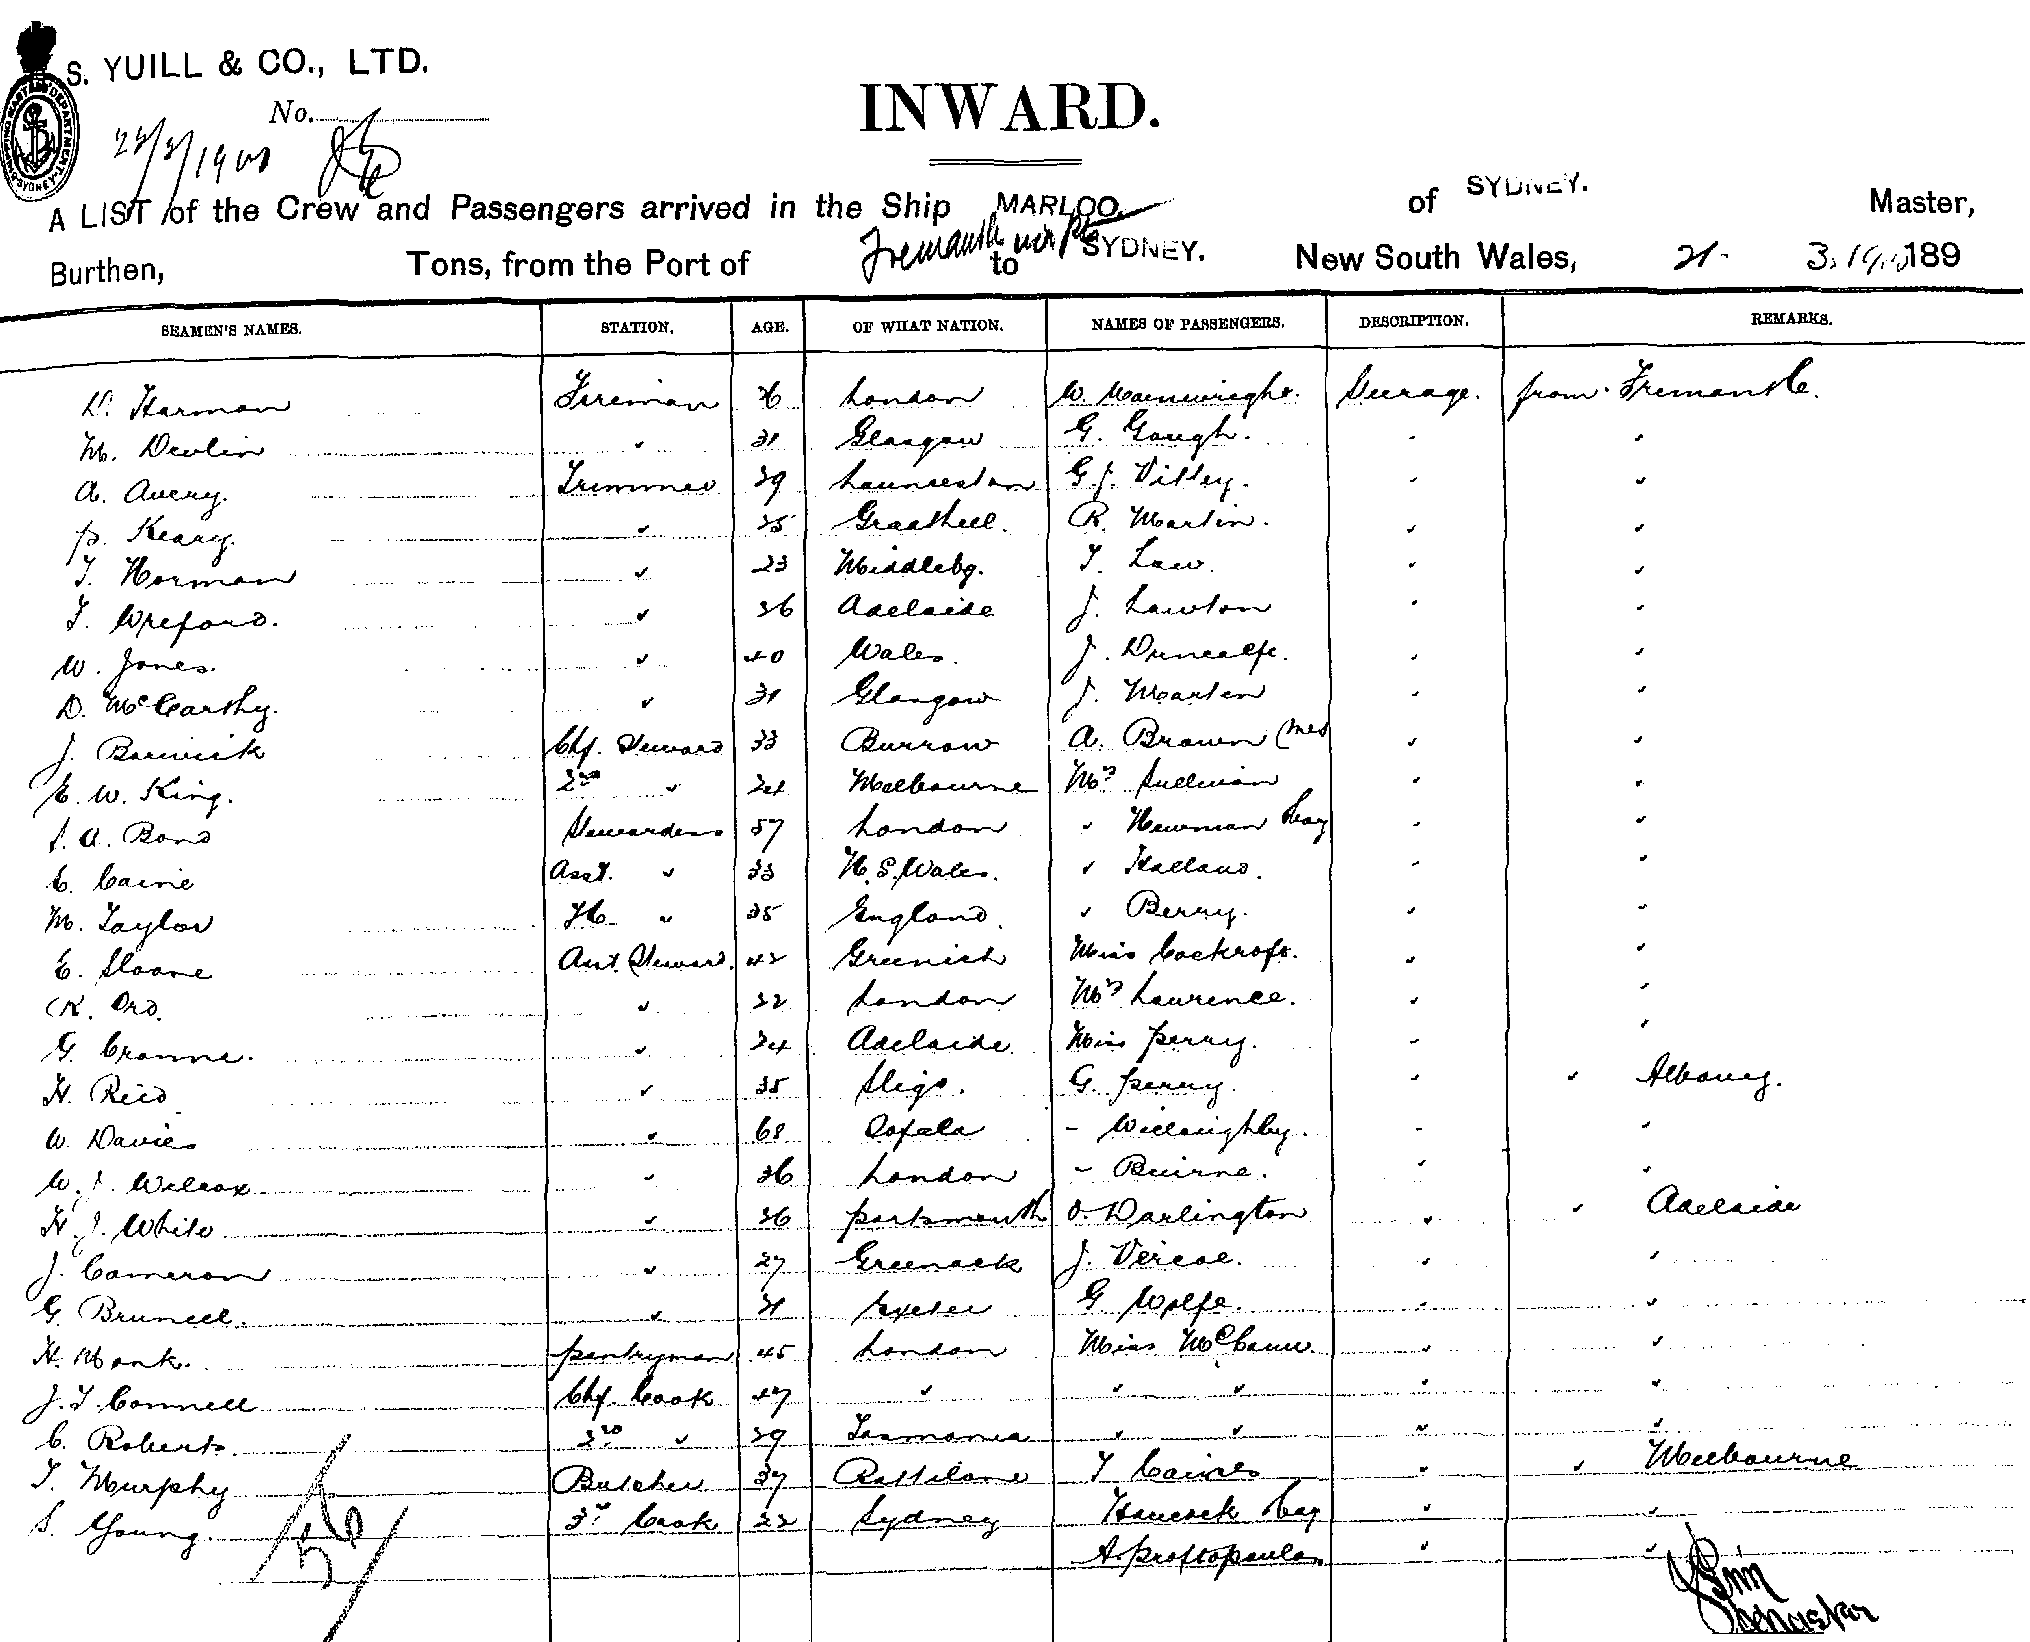 S. YUILL & CO., LTD.
No.
INWARD.
A LIST of the Crew and Passengers arrived in the Ship MARLOO. of SYDNEY. Master,
Burthen, Tons, from the Port of Fremantle to SYDNEY. New South Wales, 21. 3. 189
SEAMEN'S NAMES. STATION, AGE. OF WHAT NATION. NAMES OF PASSENGERS. DESCRIPTION. REMARKS.
D. Harman Fireman 26 London W. Mainwright. Steerage. from Fremantle.
M. Devlin " 31 Glasgow G. Gough. " "
A. Avery. Trimmer 29 Launceston G. J. Vitley. " "
P. Keary. " 25 R. Martin. " "
T. Norman " 23 Middlebg. T. Law. " "
T. Wreford. " 36 Adelaide J. Lawton " "
W. Jones. " 40 Wales. J. Duncalfe. " "
D. McCarthy. " 31 Glasgow J. Martin " "
J. Barwick Chf. Steward 33 Burrow A. Brown (Mrs " "
E. W. King. 2nd " 24 Melbourne Mrs Sullivan " "
S. A. Bond Stewardess 57 London " Newman " "
C. Caine Asst. " 33 N. S. Wales. " Holland. " "
M. Taylor " 35 England. " Berry. " "
E. Sloane Ast. Steward. 42 Greenich Miss Cockroft. " "
R. Ord. " 22 London Mrs Laurence. " "
G. Cranna. " 24 Adelaide Miss Perry. " "
H. Reid " 35 Sligo. G. Perry. " " Albany.
W. Davies " 68 Sofala - Willoughby. - "
W. J. Wilcox " 36 London - Beirne. " "
H. J. White " 36 Portsmouth O. Darlington " " Adelaide
J. Cameron " 27 Greenock J. Vercoe. " "
G. Brunell. " 31 Exeter G. Wolfe. " "
H. Monk. Pantryman 45 London Miss McCann. " "
J. T. Connell Chf. Cook 47 " " " " "
C. Roberts. 2nd " 29 Tasmania " " " "
T. Murphy Butcher 37 T Caines " " Melbourne
S. Young. 3rd Cook 22 Sydney Hancock " "
A. Proftopoulos " "
Master